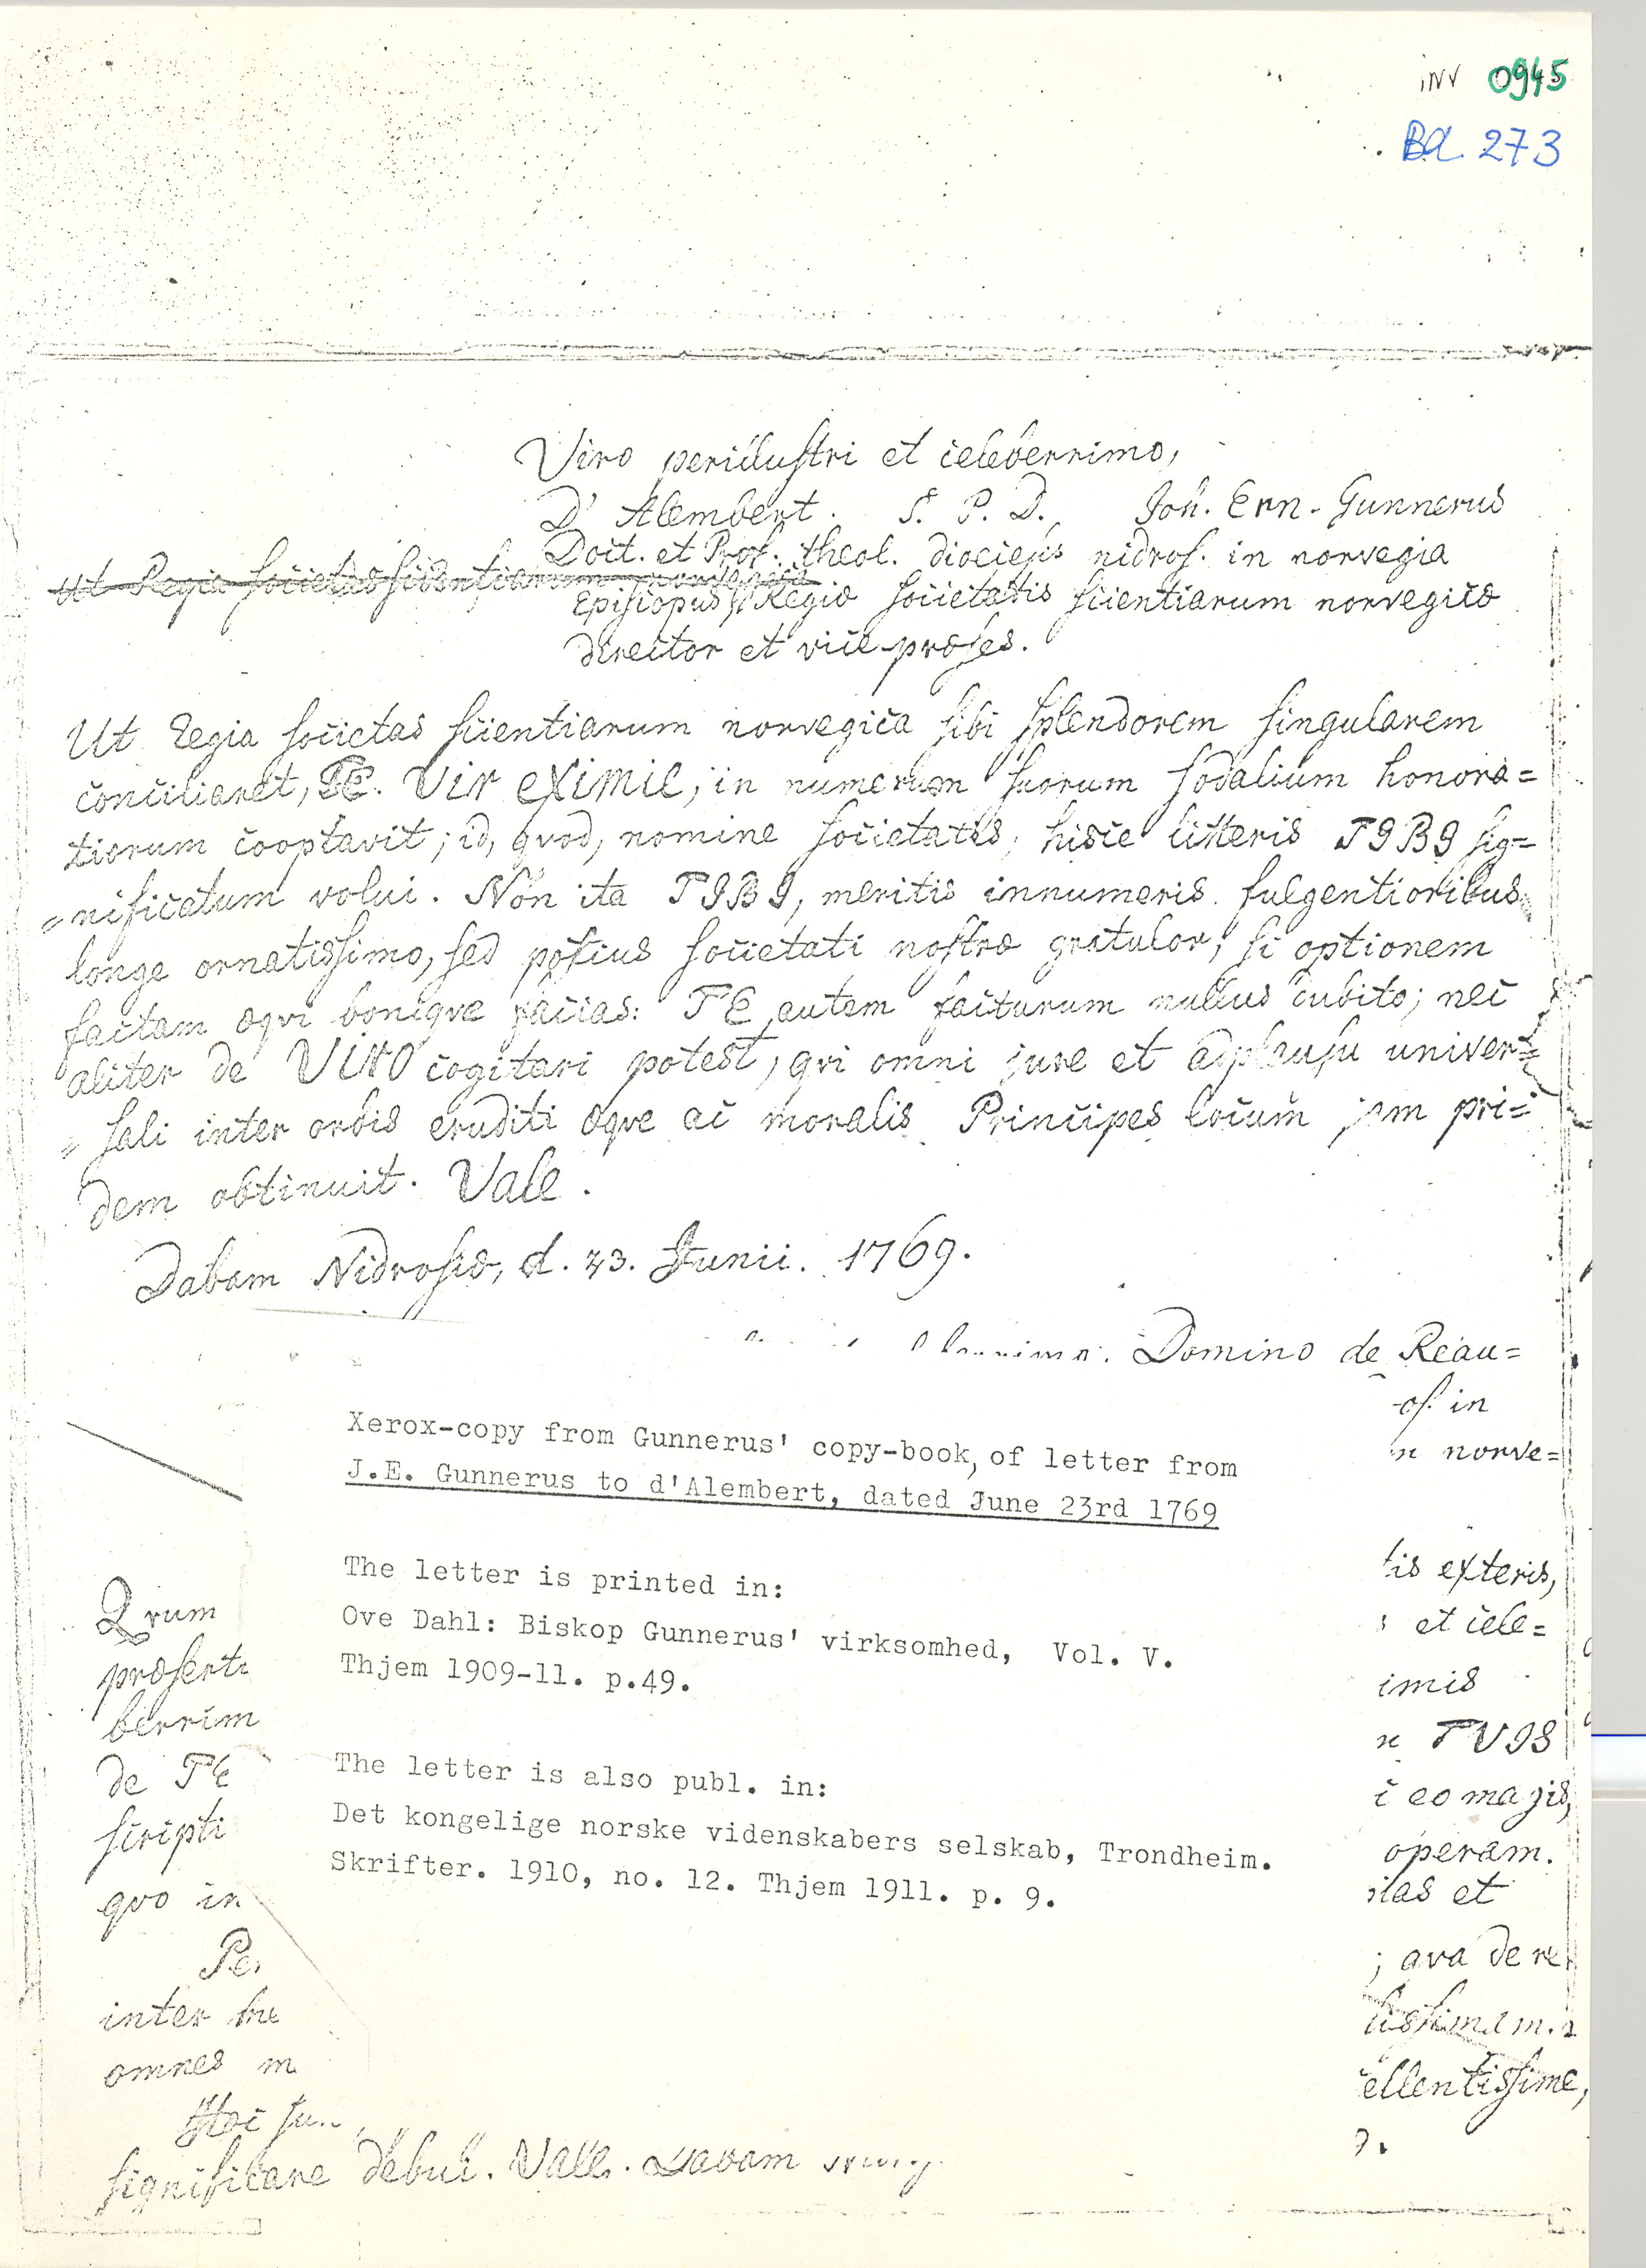 inv 0945
Bd. 273
Viro perillustri et celeberrimo,
D'Alembert. S. P. D. Joh. Ern. Gunnerus
Doct. et Prof. theol. diocieps nidros. in norvegia
Ut Regia Societas scientiarum norvegica
Episcopus Regiæ societatis scientiarum norvegicæ
director et vice-præses.
Ut Regia societas scientiarum norvegica sibi splendorem singularem
conciliaret, TE. Vir eximie, in numerum suorum sodalium honora=
tiorum cooptavit; id, qvod, nomine societatis, hisce litteris TIBI sig=
=nificatum volui. Non ita TIBI, meritis innumeris fulgentioribus
longe ornatissimo, sed potius societati nostræ gratulor, si optionem
factam æqvi boniqve facias: TE autem facturum nullus dubito; nec
aliter de Viro cogitari potest, qvi omni jure et adplausu univer=
=sali inter orbis eruditi æqve ac moralis Principes locum jam pri=
dem obtinuit. Vale.
Dabam Nidrosiæ, d. 23. Junii. 1769.
Domino de Reau=
of. in
norve=
Xerox-copy from Gunnerus' copy-book, of letter from
J.E. Gunnerus to d'Alembert, dated June 23rd 1769
tis exteris,
The letter is printed in:
Qvum et cele=
Ove Dahl: Biskop Gunnerus' virksomhed, Vol. V.
præsenti imis
Thjem 1909-11. p.49.
berrim TVIS
de TE c eo magis,
The letter is also publ. in:
scripti operam.
Det kongelige norske videnskabers selskab, Trondheim.
Skrifter. 1910, no. 12. Thjem 1911. p. 9.
qvo in itas et
Per ; ava de re
inter hu tissimam.
omnes m ellentissime,
Hoc su
significare debui. Vale. Dabam